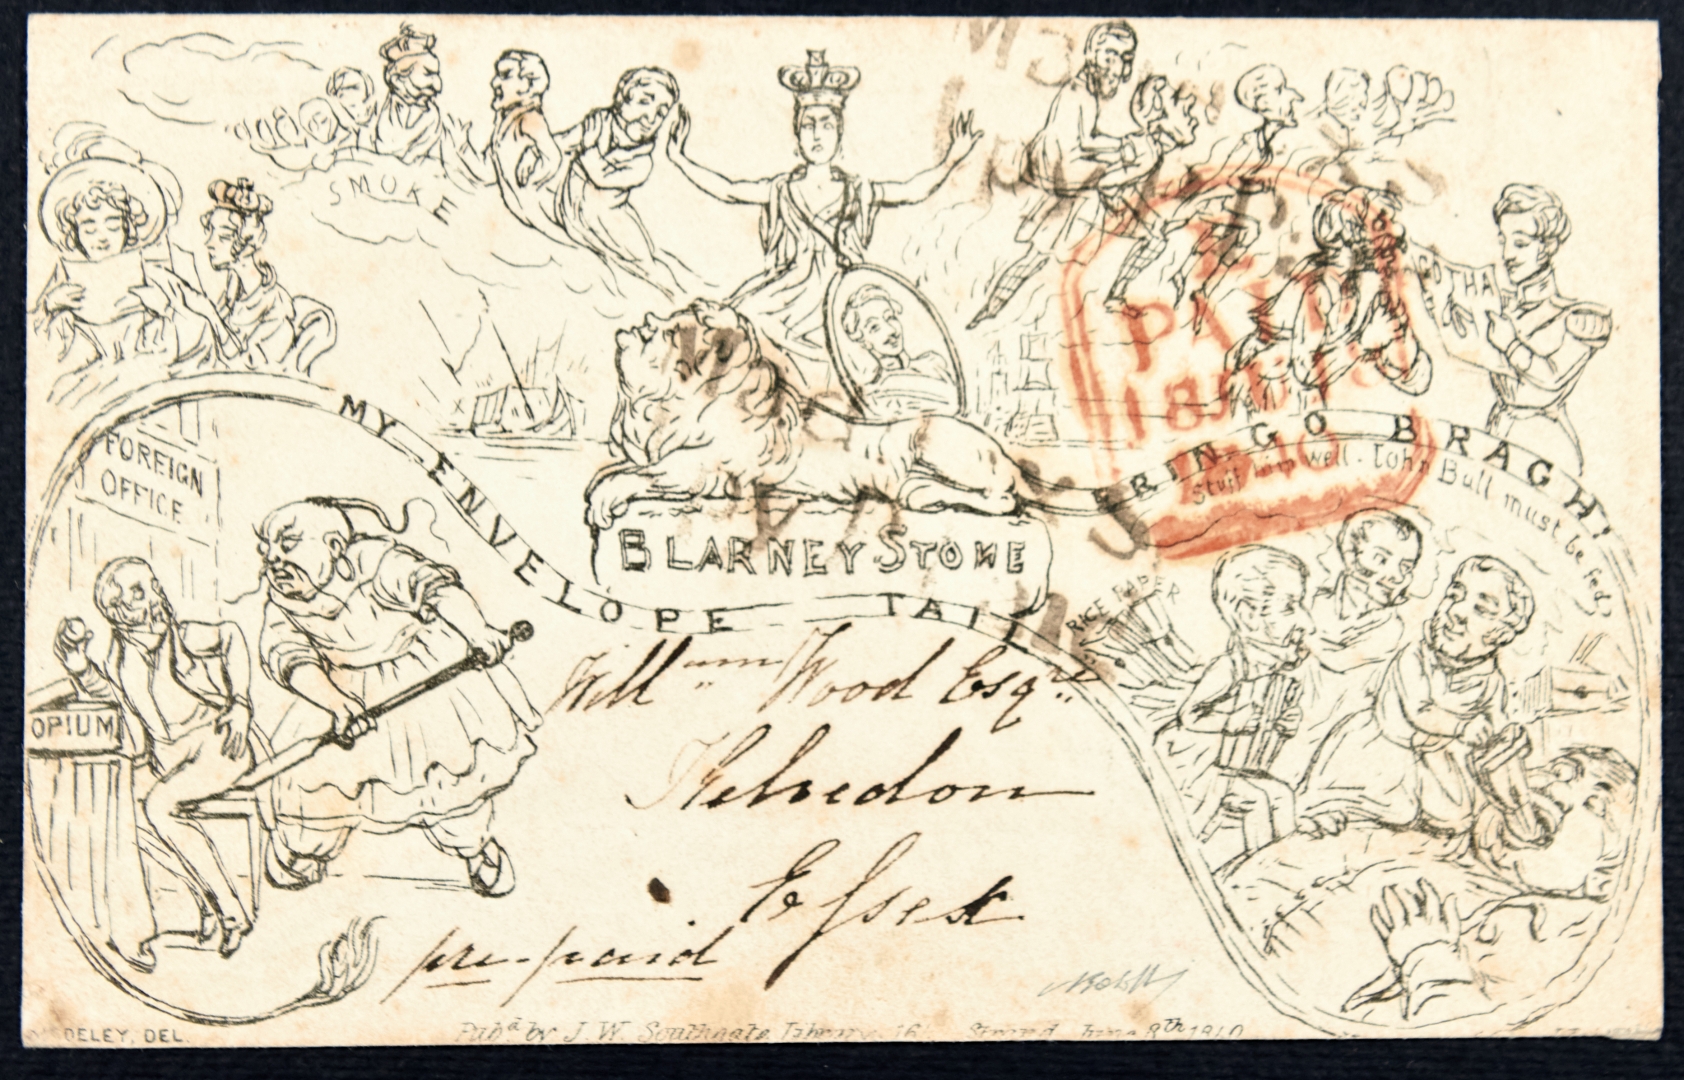 SMOKE
GOTHA
MY ENVELOPE TAIL
ERIN GO BRAGH!
Stuff him well. John Bull must be fed,
FOREIGN
OFFICE
BLARNEY STONE
RICE PAPER
OPIUM
PAID
1840
Will^m Wood Esq^re
Kelvedon
Essex
pre-paid
DELEY, DEL.
Pub^d by J. W. Southgate Library, 16 Strand June 8^th 1840